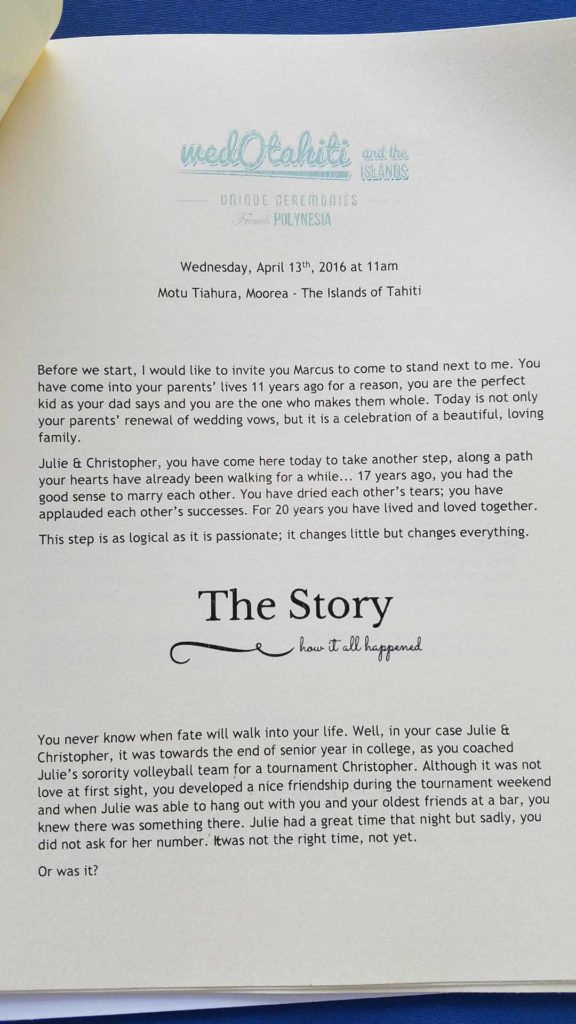 wedOtahiti and the ISLANDS
UNIQUE CEREMONIES
French POLYNESIA
Wednesday, April 13th, 2016 at 11am
Motu Tiahura, Moorea - The Islands of Tahiti
Before we start, I would like to invite you Marcus to come to stand next to me. You
have come into your parents' lives 11 years ago for a reason, you are the perfect
kid as your dad says and you are the one who makes them whole. Today is not only
your parents' renewal of wedding vows, but it is a celebration of a beautiful, loving
family.
Julie & Christopher, you have come here today to take another step, along a path
your hearts have already been walking for a while... 17 years ago, you had the
good sense to marry each other. You have dried each other's tears; you have
applauded each other's successes. For 20 years you have lived and loved together.
This step is as logical as it is passionate; it changes little but changes everything.
The Story
how it all happened
You never know when fate will walk into your life. Well, in your case Julie &
Christopher, it was towards the end of senior year in college, as you coached
Julie's sorority volleyball team for a tournament Christopher. Although it was not
love at first sight, you developed a nice friendship during the tournament weekend
and when Julie was able to hang out with you and your oldest friends at a bar, you
knew there was something there. Julie had a great time that night but sadly, you
did not ask for her number. It was not the right time, not yet.
Or was it?